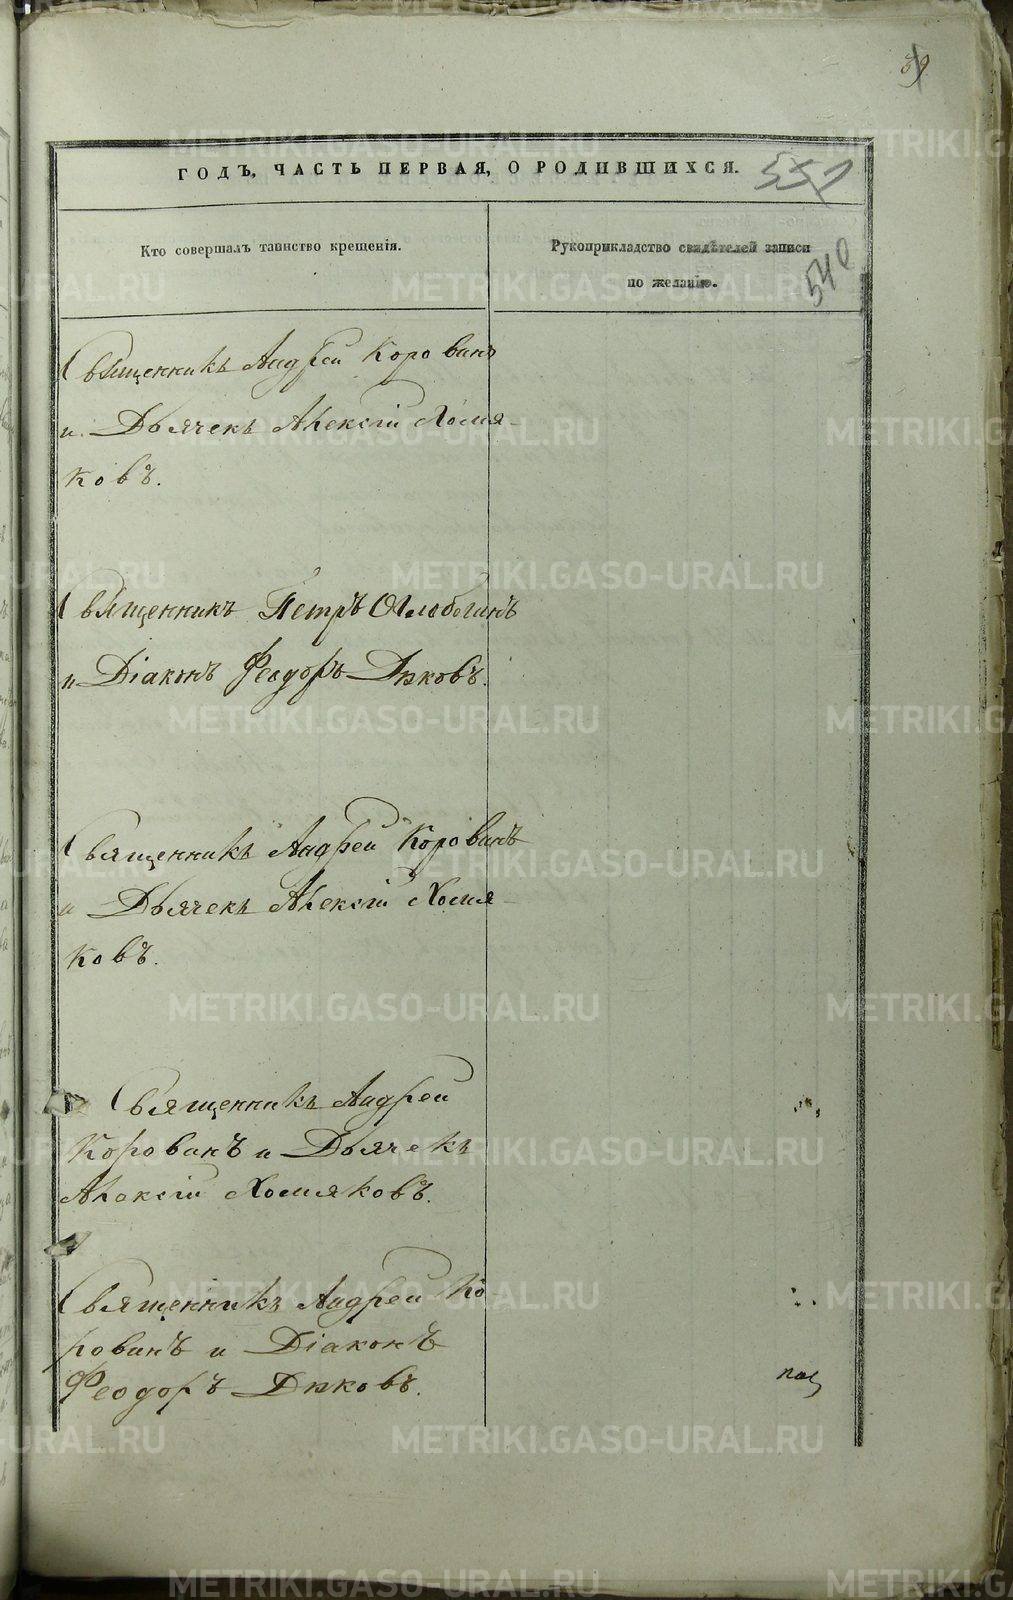 59
ГОДЪ, ЧАСТЬ ПЕРВАЯ, О РОДИВШИХСЯ.
551
Кто совершалъ таинство крещенія.
Рукоприкладство свидѣтелей записи
по желанію.
540
Священникъ Андрей Корован
и Дьячекъ Алексій Хомя-
ковъ.
Священникъ Петръ
и Діаконъ Феодоръ Дьковъ.
Священникъ Андрей Корованъ
и Дьячекъ Алексій Хомя-
ковъ.
Священникъ Андрей
Корованъ и Дьячекъ
Алексій Хомяковъ.
Священникъ Андрей Ко-
рованъ и Діаконъ
Феодоръ Дьковъ.
METRIKI.GASO-URAL.RU